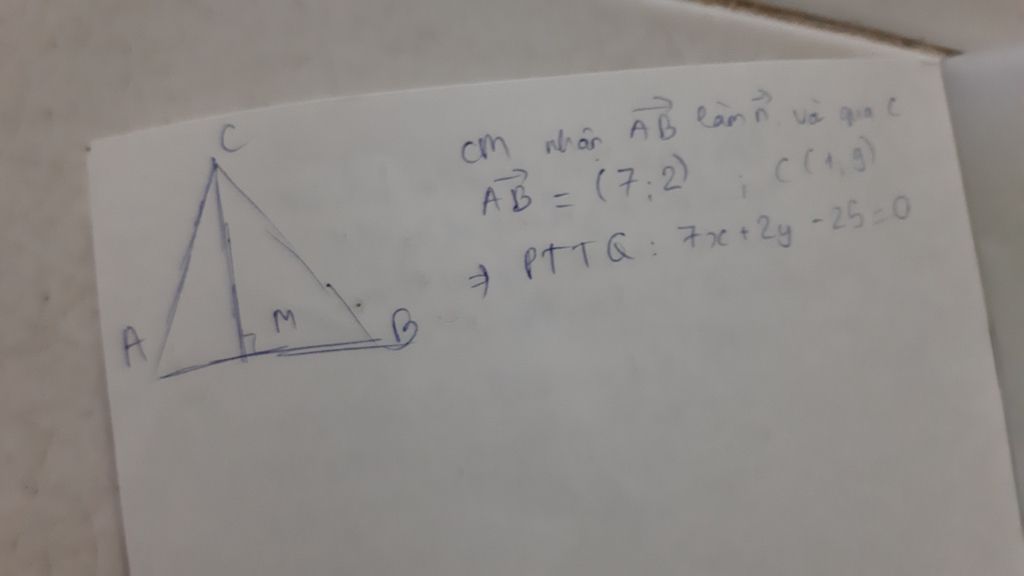 C
A
M
B
CM nhận AB làm n và qua C
AB = (7;2) ; C(1,9)
⇒ PTTQ: 7x+2y-25=0